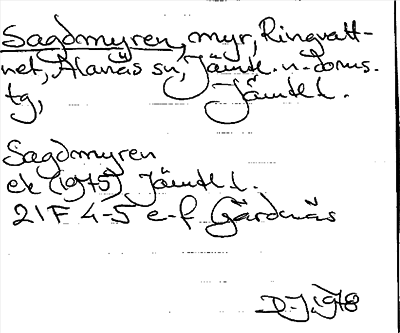 Sagdmyren, myr, Ringvatt-
net, Alanäs sn, Jämtl. n. doms.
tg, Jämtl l.
Sagdmyren
ek (1975) Jämtl l.
21F 4-5 e-f Gärdnäs
D-J. 1978